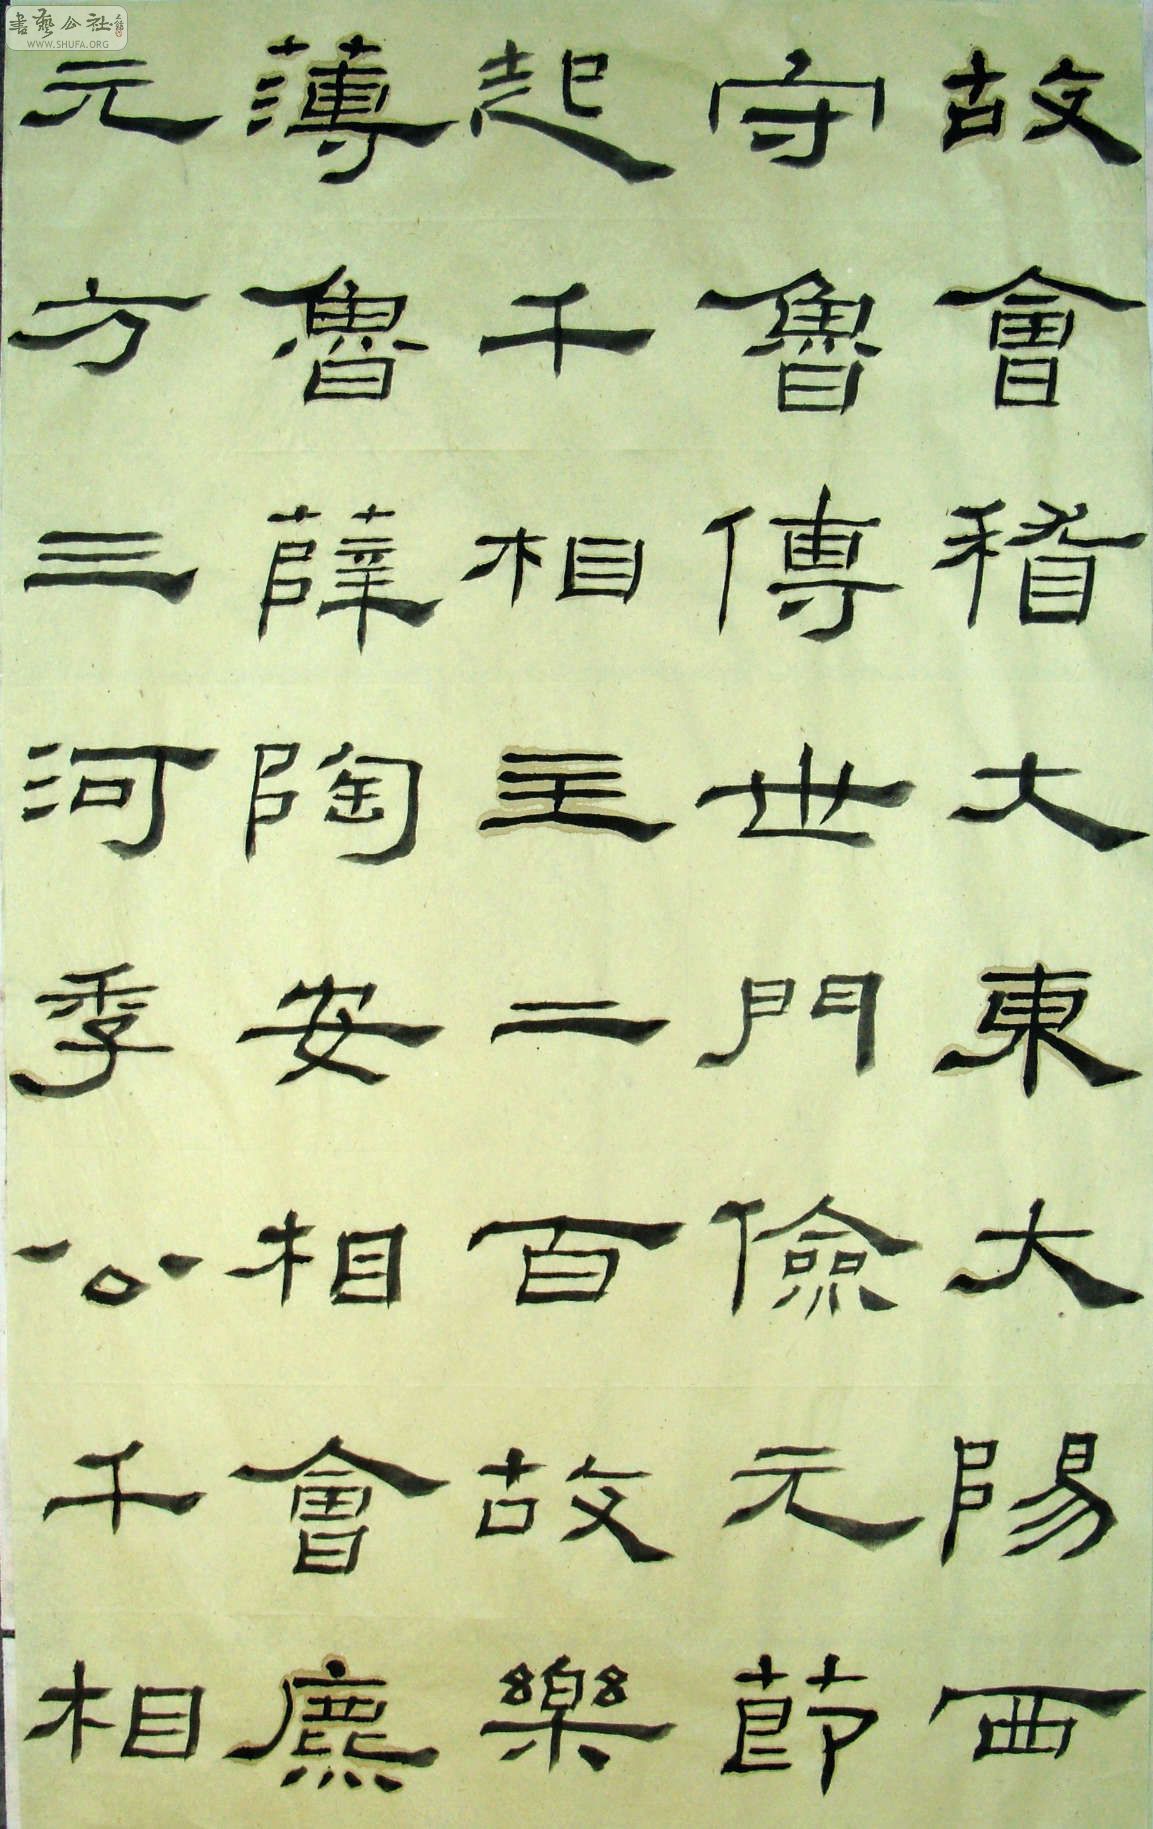 故會稽大東大陽西
守魯傅世門儉元節
起千相主二百故樂
薄魯薛陶安相會鹿
元方三河季公千相
書藝公社
WWW.SHUFA.ORG